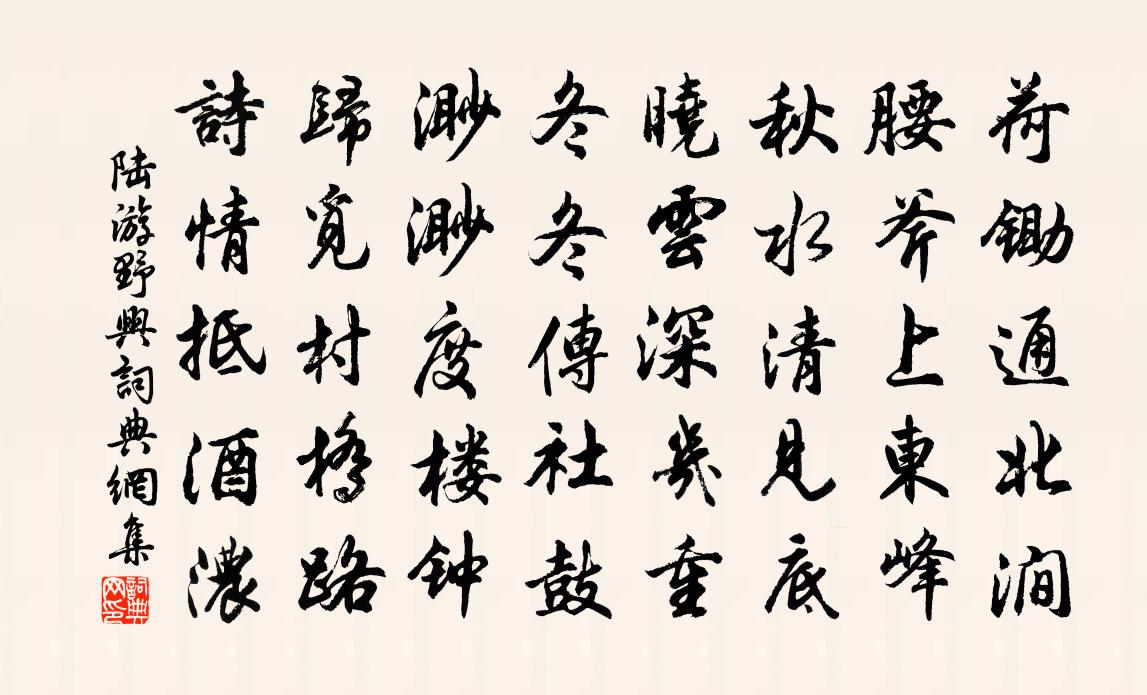 荷鋤通北澗
腰斧上東峰
秋水清見底
曉雲深幾重
冬冬傳社鼓
渺渺度楼钟
歸覓村橋路
詩情抵酒濃
陆游野興詞典網集
詞典網印